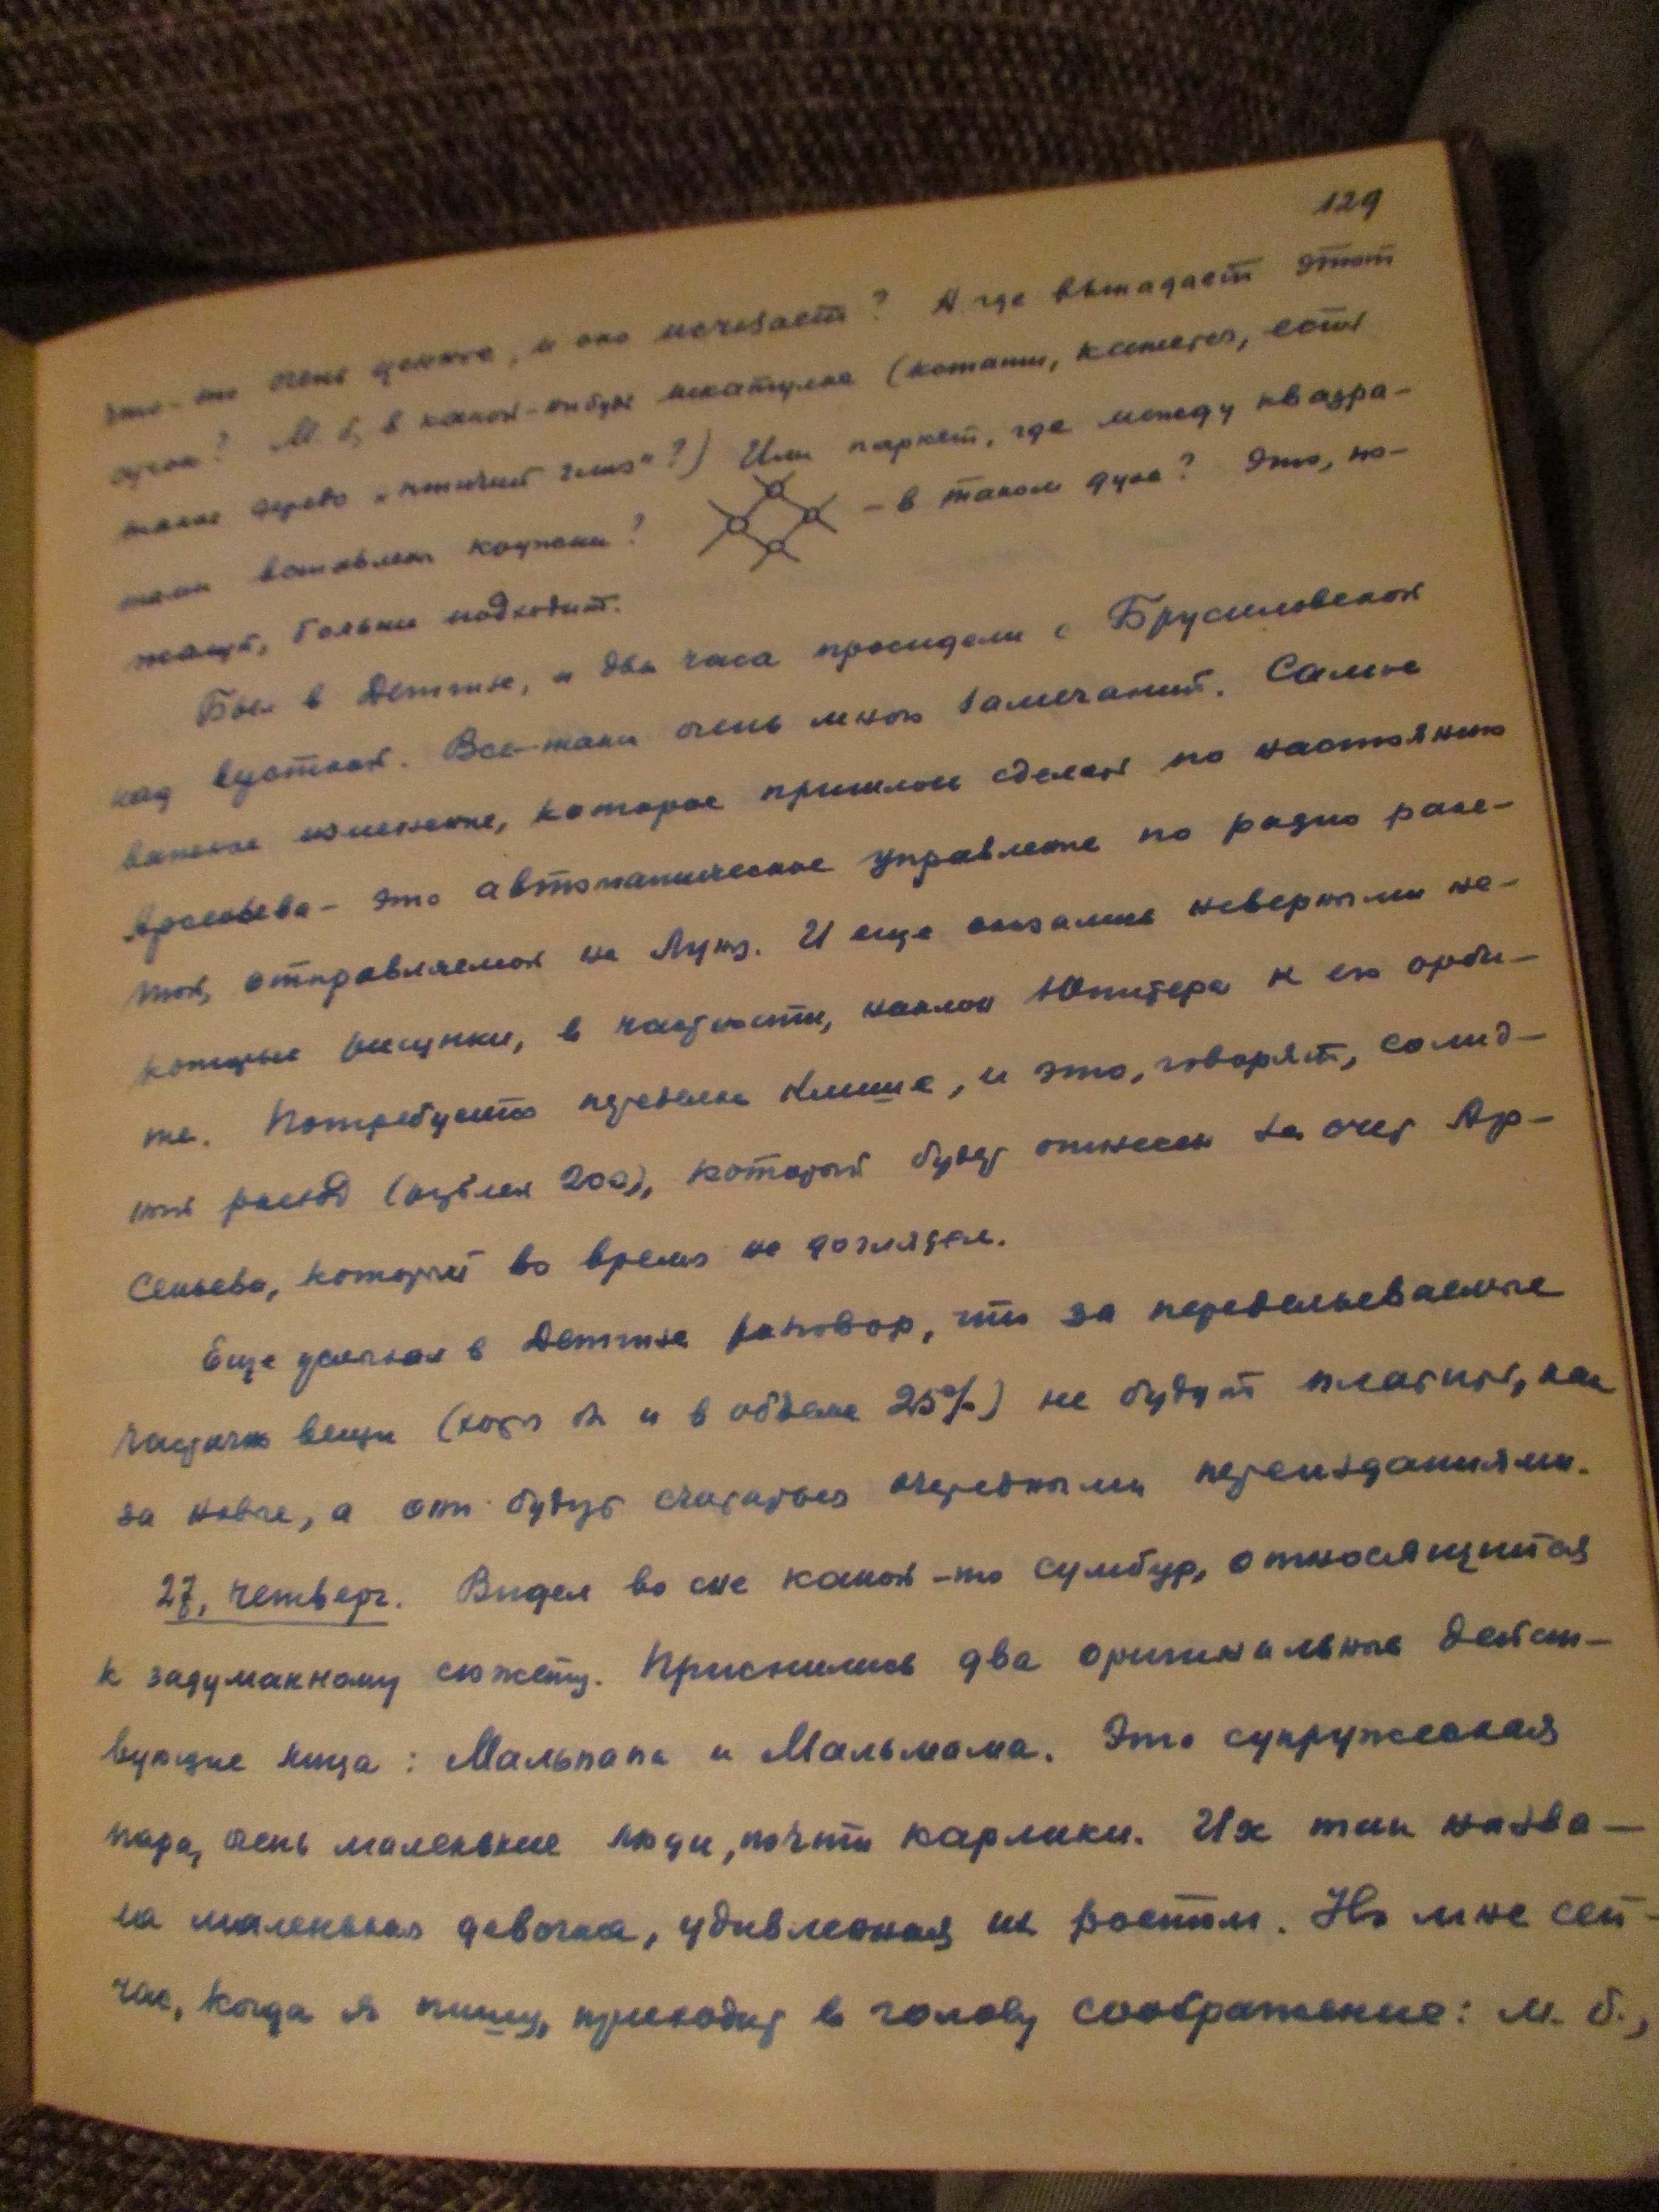 129
что-то очень ценное, и оно исчезает? А где выпадает этот
сучок? М. б, в какой-нибудь шкатулке (кстати, кажется, есть
такое дерево „птичий глаз"?) Или паркет, где между квадра-
тами вставлены кружки? – в таком духе? Это, по-
жалуй, больше подходит.
Был в Детгизе, и два часа просидели с Брусиловской
над версткой. Все-таки очень много замечаний. Самое
важное изменение, которое пришлось сделать по настоянию
Арсеньева – это автоматическое управление по радио раке-
той, отправляемой на Луну. И еще оказались неверными не-
которые рисунки, в частности, наклон Юпитера к его орби-
те. Потребуется переделка клише, и это, говорят, солид-
ный расход (рублей 200), который будет отнесен за счет Ар-
сеньева, который во время не доглядел.
Еще услыхал в Детгизе разговор, что за переделываемые
частично вещи (хотя бы и в объеме 25%) не будут платить, как
за новые, а они будут считаться очередными переизданиями.
27, четверг. Видел во сне какой-то сумбур, относящийся
к задуманному сюжету. Приснились два оригинальные дейст-
вующие лица: Мальпапа и Мальмама. Это супружеская
пара, очень маленькие люди, почти карлики. Их так назва-
ла маленькая девочка, удивленная их ростом. Но мне сей-
час, когда я пишу, приходит в голову соображение: м. б.,